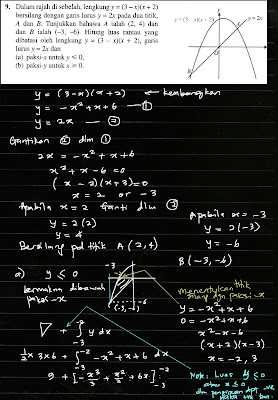 9. Dalam rajah di sebelah, lengkung y = (3 – x)(x + 2)
bersilang dengan garis lurus y = 2x pada dua titik,
A dan B. Tunjukkan bahawa A ialah (2, 4) dan
dan B ialah (–3, –6). Hitung luas rantau yang
dibatasi oleh lengkung y = (3 – x)(x + 2), garis
lurus y = 2x dan
(a) paksi-y untuk y ≤ 0,
(b) paksi-y untuk x ≥ 0.
y = (3 – x)(x + 2)
y
y = 2x
A
O
x
B
y = (3-x)(x+2) ← kembangkan
y = -x² + x + 6 — ①
y = 2x — ②
Gantikan ② dlm ①
2x = -x² + x + 6
x² + x - 6 = 0
(x - 2)(x + 3) = 0
x = 2 or -3
Apabila x = 2 Ganti dlm ②
y = 2(2)
y = 4
Bersilang pd titik A (2, 4)
Apabila x = -3
y = 2(-3)
y = -6
B (-3, -6)
a) y ≤ 0
bermakna dibawah
paksi-x
-3
-6
(-3, -6)
menentukan titik
silang dgn paksi-x
y = -x² + x + 6
0 = -x² + x + 6
x² - x - 6
(x+2)(x-3)
x = -2, 3
+ ∫ y dx
-3
½ x 3 x 6 + ∫ -x² + x + 6 dx
-2
-3
9 + [ -x³/3 + x²/2 + 6x ]
-2
-3
Note: Luas y ≤ 0